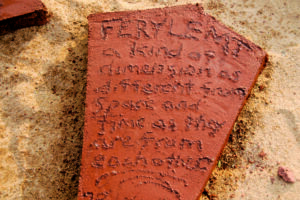 FERYLEMT
a kind of
dimension as
different from
space and
time as they
are from
each other